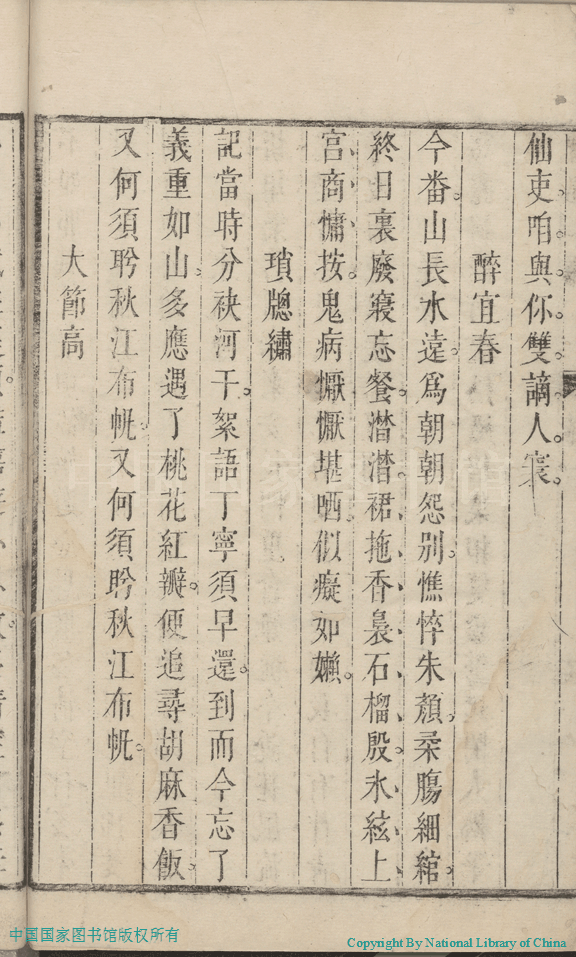 仙吏。咱與你雙謫人寰。
醉宜春
今番。山長水遠。爲朝朝怨別。憔悴朱顏。柔腸細綰。
終日裏廢寢忘餐。潛潛。裙拖香裊石榴殷。氷絃上
宫商慵按。鬼病懨懨堪哂。似癡如嬾。
瑣牕繡
記當時分袂河干。絮語丁寧須早還。到而今忘了
義重如山。多應遇了桃花紅瓣。便追尋胡麻香飯。
又何須盻秋江布帆。又何須盻秋江布帆。
大節高
中国国家图书馆版权所有
Copyright By National Library of China